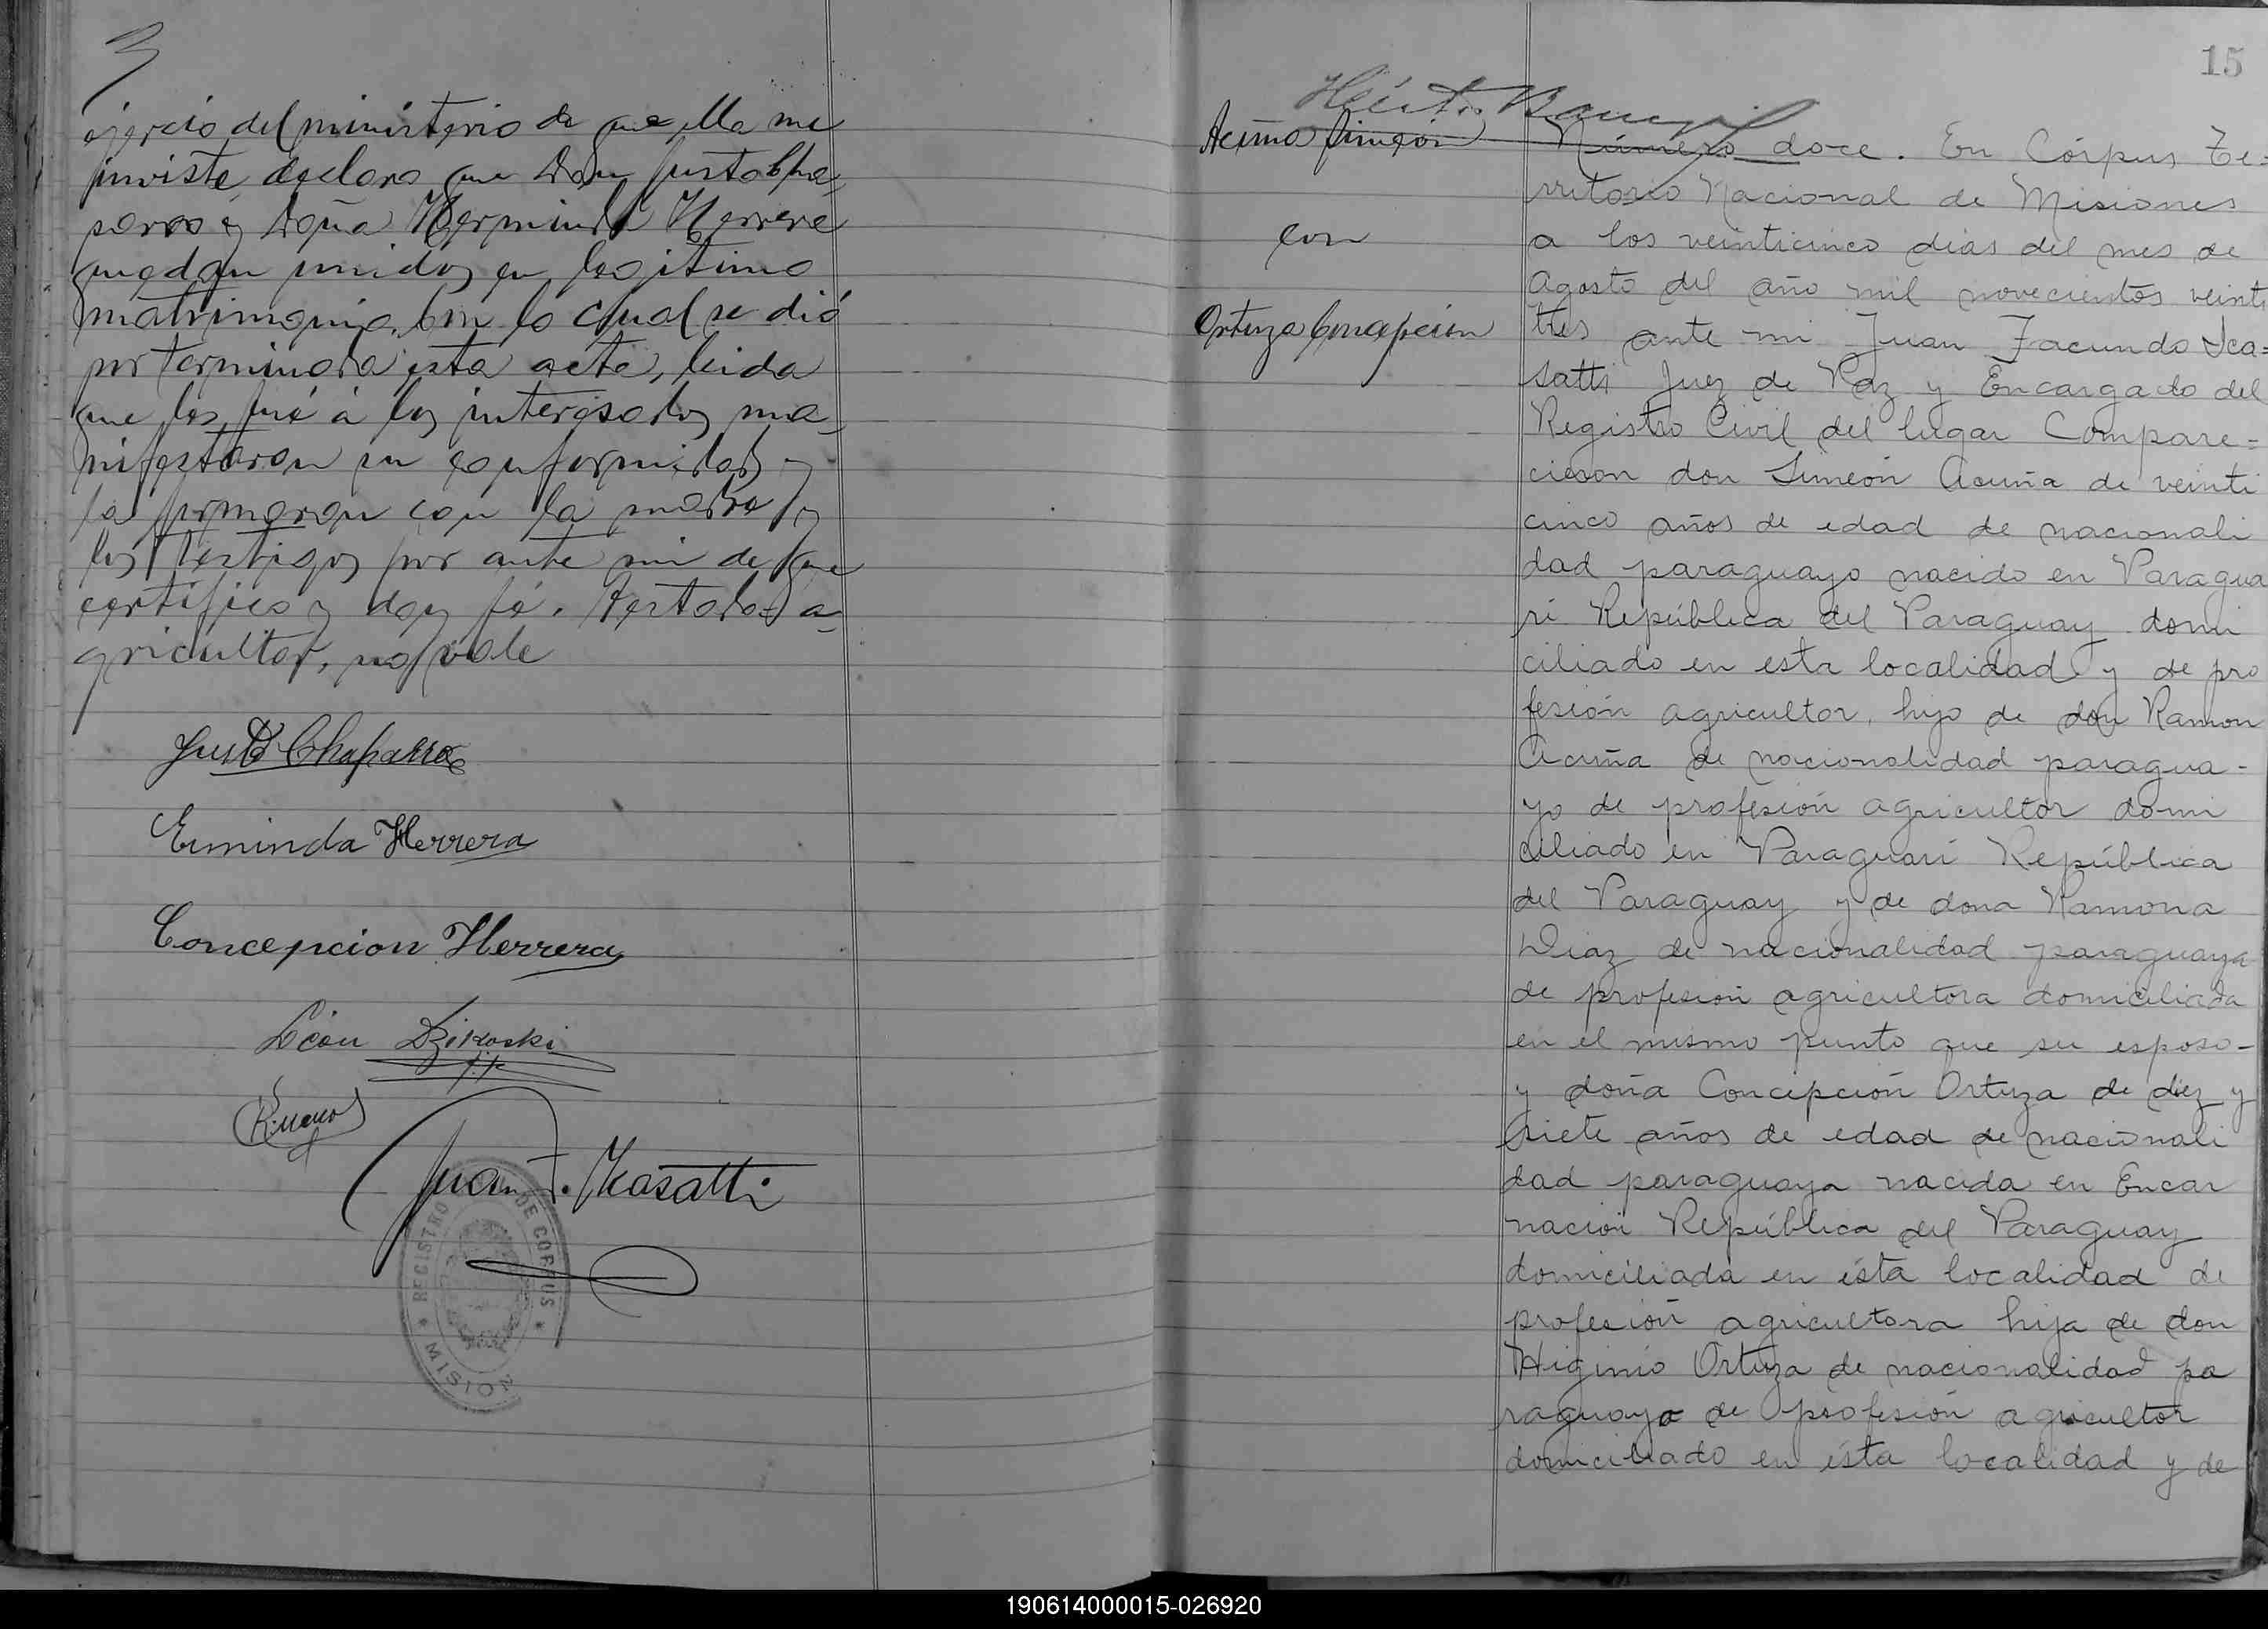 ejercio del ministerio de que ella me
inviste, declaro que Don Justo Cha,
parro y Doña Herminda Herrera
quedan unidos en legitimo
matrimonio. Con lo cual se dió
por terminada esta acta, leida
que les fué á los interesados ma,
nifestaron su conformidad y
la firmaron con la madre y
los testigos por ante mi de que
certifico y doy fé. Testado = a=
gricultor, no vale
Justo Chaparro
Erminda Herrera
Concepcion Herrera
León Dzikoski
Juan F. Icasatti
REGISTRO DE CORPUS
MISION
15
Acuña Simeón
con
Ortuza Concepción
Número doce. En Córpus Te=
rritorio Nacional de Misiones
a los veinticinco dias del mes de
Agosto del año mil novecientos veinti
tres ante mi Juan Facundo Ica=
satti Juez de Paz y Encargado del
Registro Civil del lugar Compare=
cieron don Simeón Acuña de veinti
cinco años de edad de nacionali
dad paraguayo nacido en Paragua
rí República del Paraguay domi
ciliado en esta localidad y de pro
fesión agricultor, hijo de don Ramon
Acuña de nacionalidad paragua-
yo de profesión agricultor domi
ciliado en Paraguarí República
del Paraguay y de dona Ramona
Diaz de nacionalidad paraguaya
de profesion agricultora domiciliada
en el mismo punto que su esposo-
y doña Concepción Ortuza de diez y
siete años de edad de nacionali
dad paraguaya nacida en Encar
nación República del Paraguay
domiciliada en ésta localidad de
profesión agricultora hija de don
Higinio Ortuza de nacionalidad pa
raguayo de profesión agricultor
domiciliado en ésta localidad y de
190614000015-026920